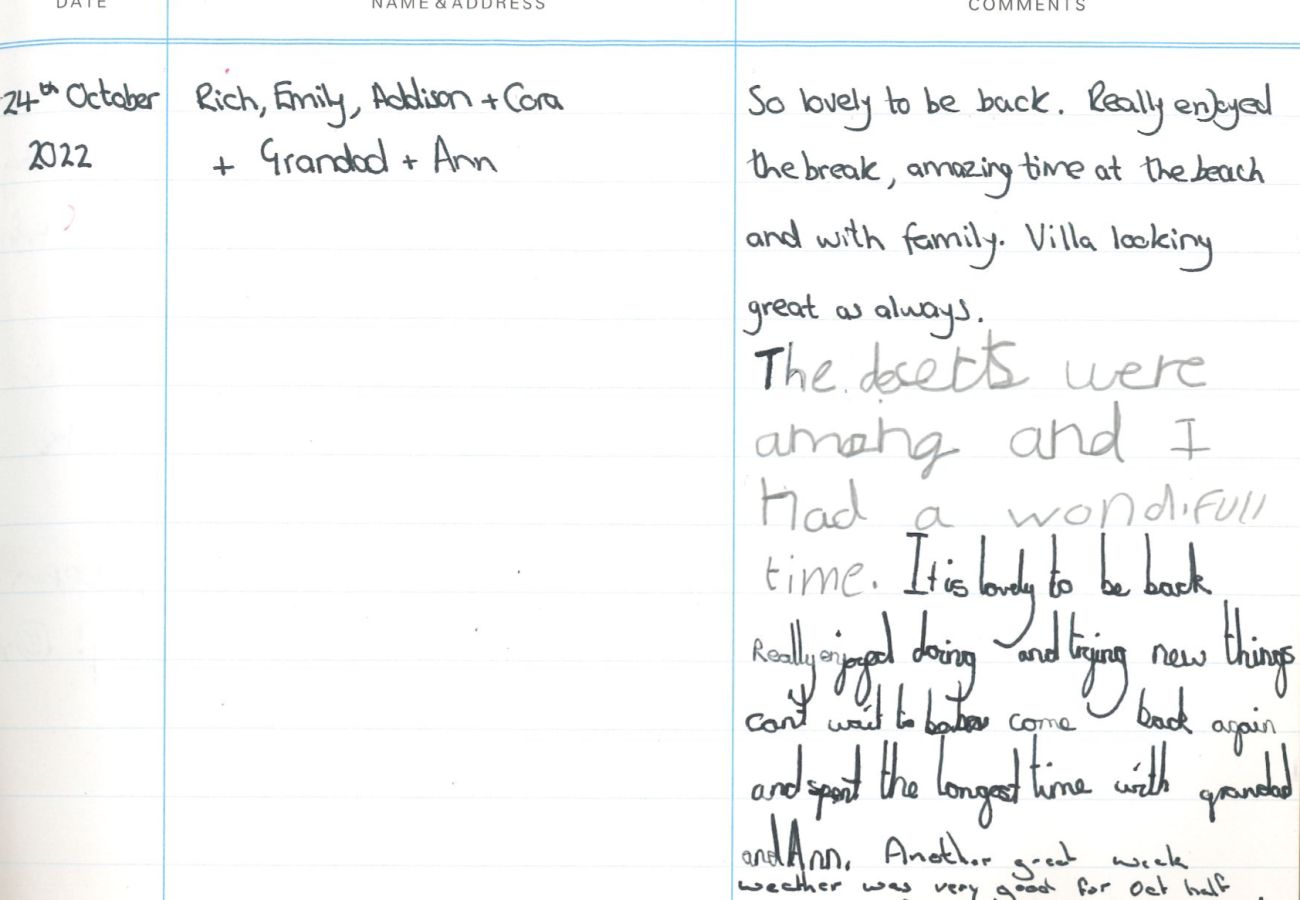 DATE NAME & ADDRESS COMMENTS
24th October Rich, Emily, Addison + Cora
2022 + Grandad + Ann
So lovely to be back. Really enjoyed
the break, amazing time at the beach
and with family. Villa looking
great as always.
The deserts were
amazing and I
Had a wondifull
time. It is lovely to be back
Really enjoyed doing and trying new things
can't wait to come back again
and spent the longest time with grandad
and Ann. Another great week
weather was very good for Oct half